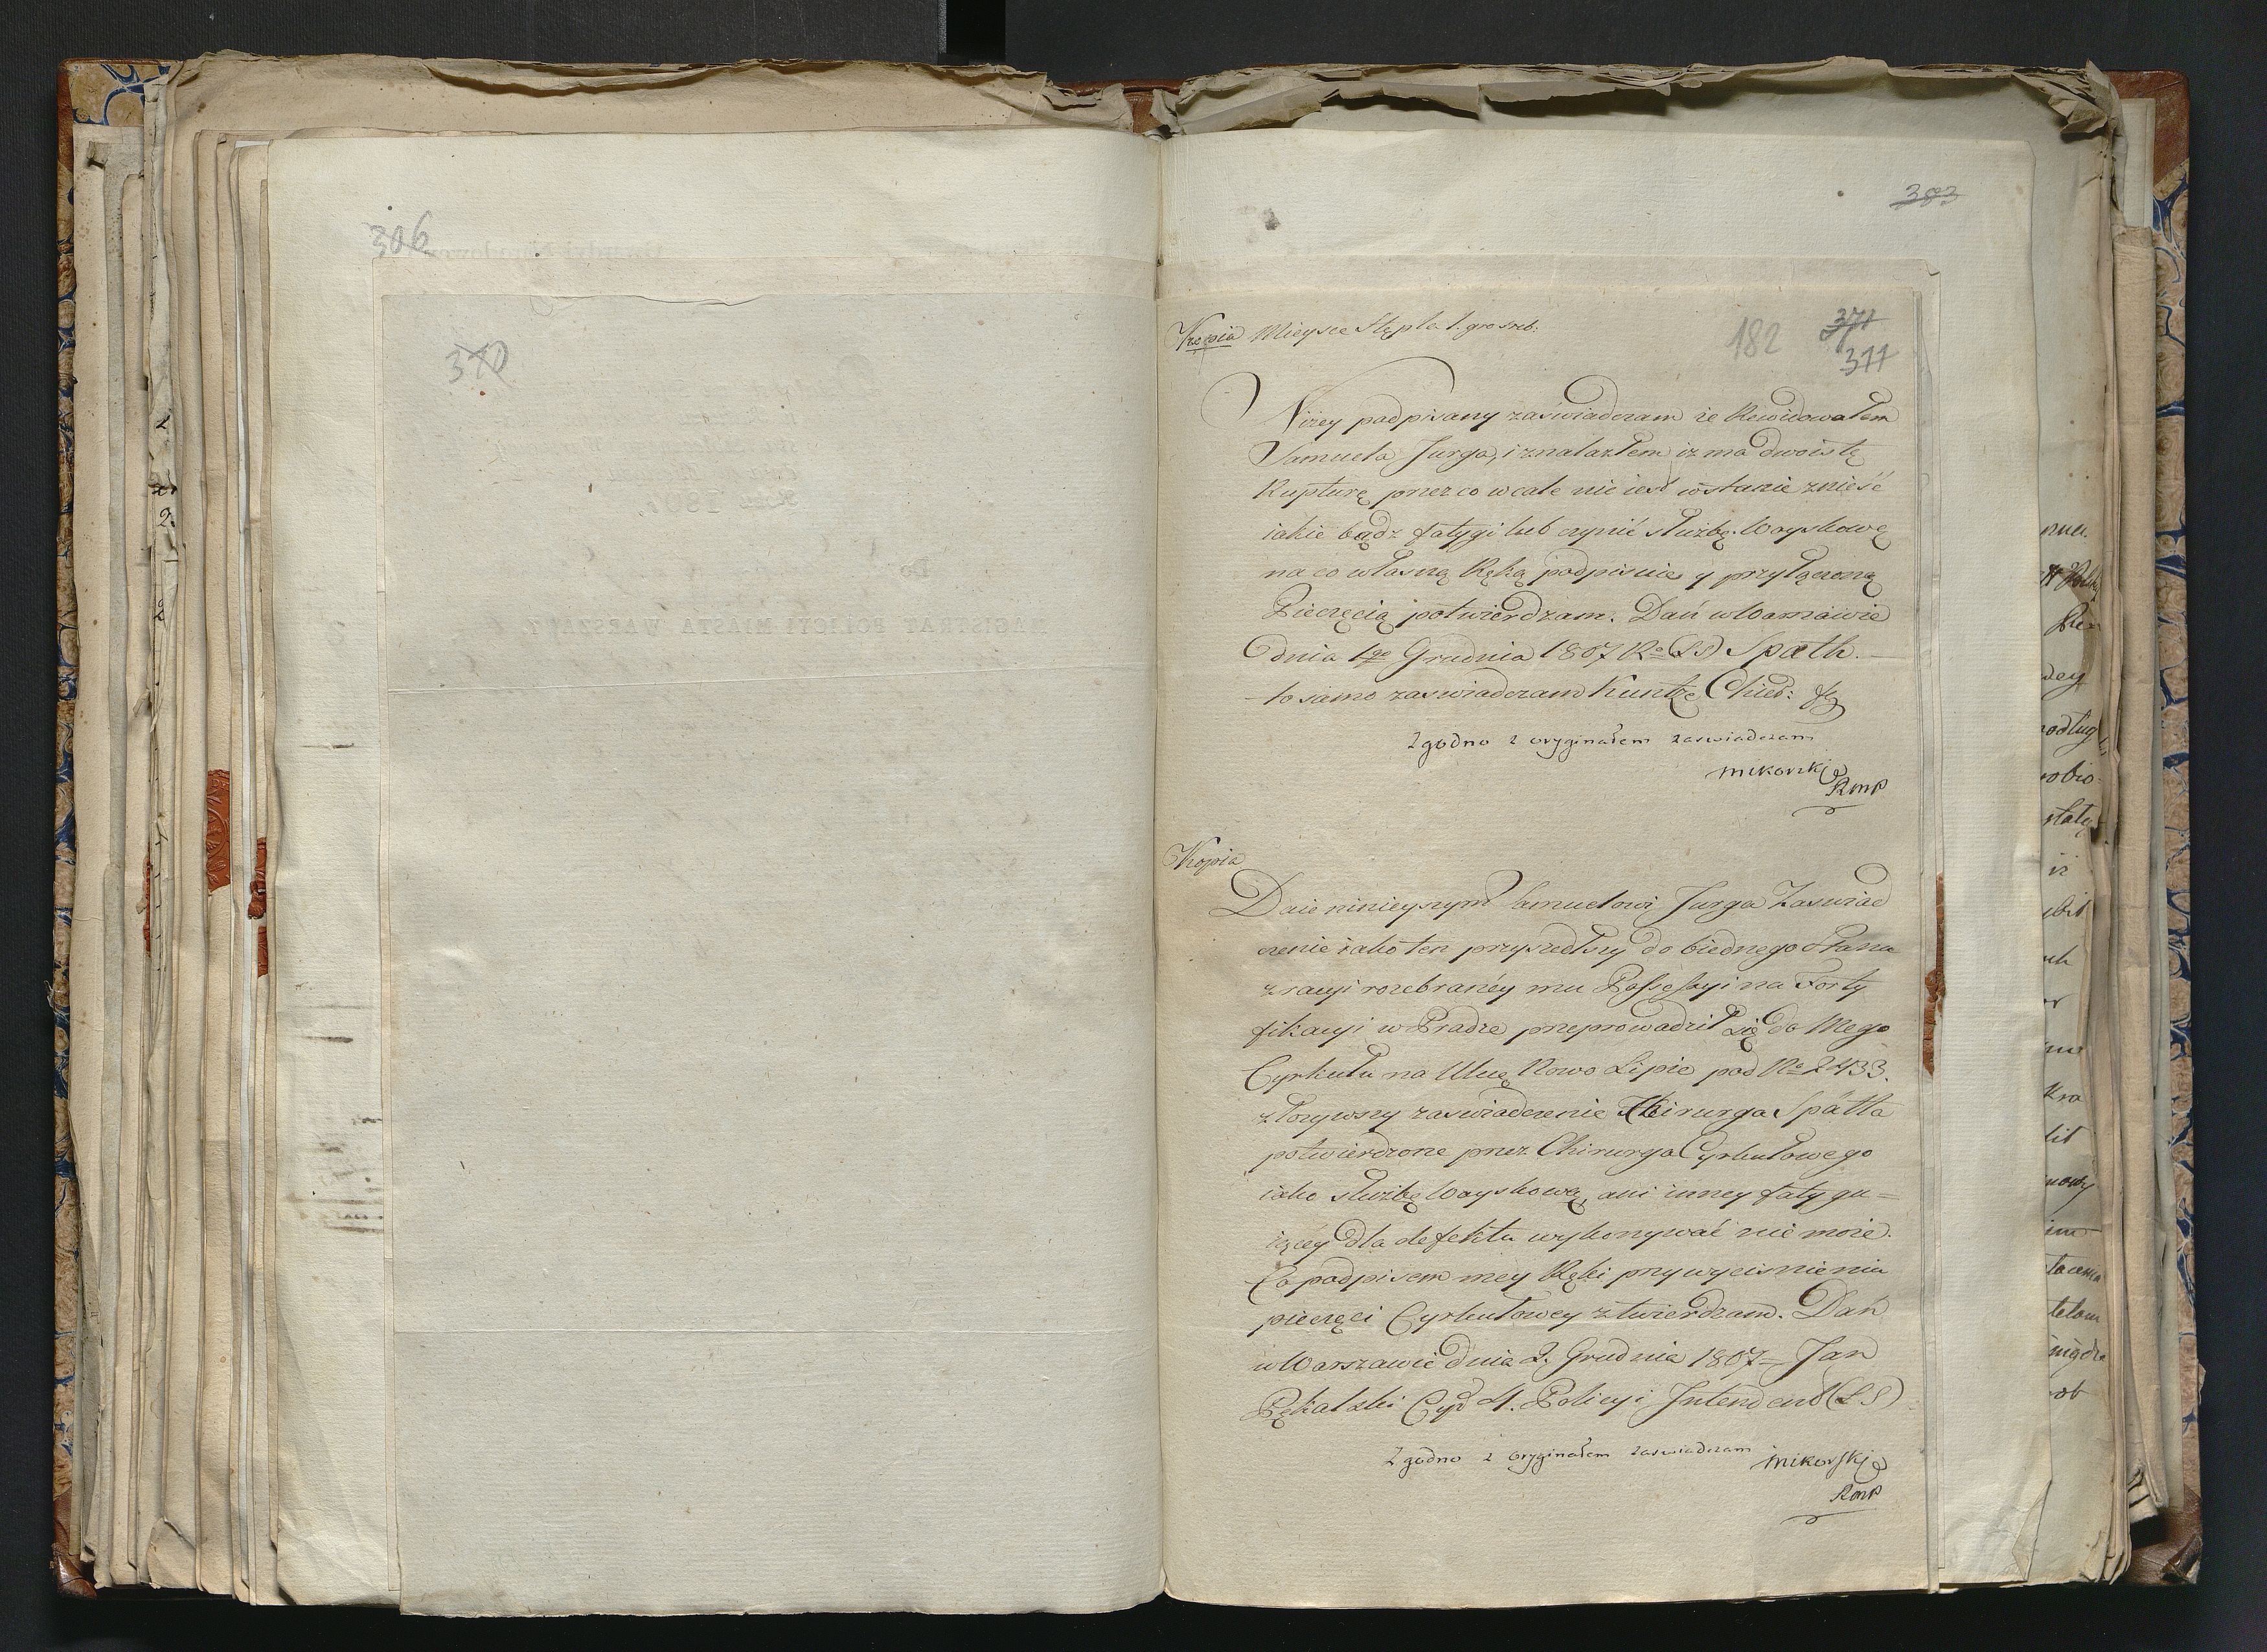 306
370
383
182
371
311
Kopia Mieysce Stępla 1. gro sreb:
Niżey podpisany zaświadczam że Rewidowałem
Samuela Jurga, i znalazłem iż ma dwoistę
Rupturę przez co wcale nie iest wstanie znieść
iakie bądz fatygi lub czynić służbę Woyskową
na co własną Ręką podpisuię y przyłączoną
Pieczęcią potwierdzam. Dań w Warszawie
dnia 1go Grudnia 1807 Ro (LS) Späth.
to samo zaswiadczam Kuntze Chir:
Zgodno z oryginałem zaswiadczam
Mikorski
RMP
Kopia
Daie ninieyszym Samuelowi Jurga Zaswiad
czenie iako ten przyszedłszy do biednego stanu
z racyi rozebraney mu Possessyi na Forty
fikacyi w Pradze przeprowadził się do Mego
Cyrkułu na Ulicę Nowo Lipie pod No 2433.
złożywszy zaswiadczenie Chirurga Spätha
potwierdzone przez Chirurga Cyrkułowego
iako służbę Woyskową, ani inney fatygu=
iącey dla defektu wykonywać nie może.
Co podpisem mey Ręki przy wycisnieniu
pieczęci Cyrkułowey ztwierdzam. Dań
w Warszawie dnia 2. Grudnia 1807 = Jan
Pękalski Cyr 4. Policyi Intendent (LS)
Zgodno z oryginałem zaswiadczam Mikorski
RMP